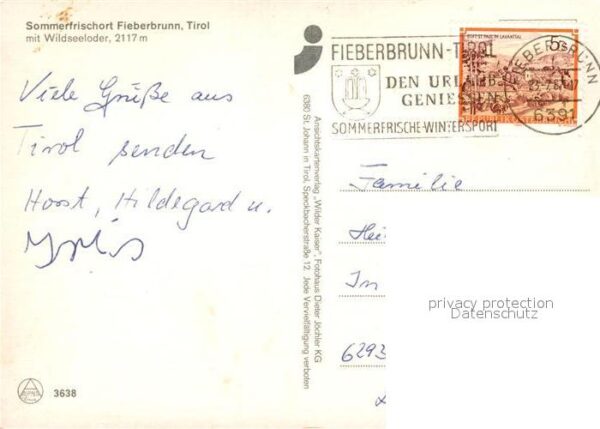 Sommerfrischort Fieberbrunn, Tirol
mit Wildseeloder, 2117 m
Viele Grüße aus
Tirol senden
Horst, Hildegard u.
3638
Ansichtskartenverlag „Wilder Kaiser“, Fotohaus Dieter Jöchler KG
6380 St. Johann in Tirol, Speckbacherstraße 12. Jede Vervielfältigung verboten
FIEBERBRUNN-TIROL
DEN URLAUB
GENIESSEN
SOMMERFRISCHE-WINTERSPORT
5 S
REPUBLIK ÖSTERREICH
FIEBERBRUNN
6391
Familie
In
6293
privacy protection
Datenschutz